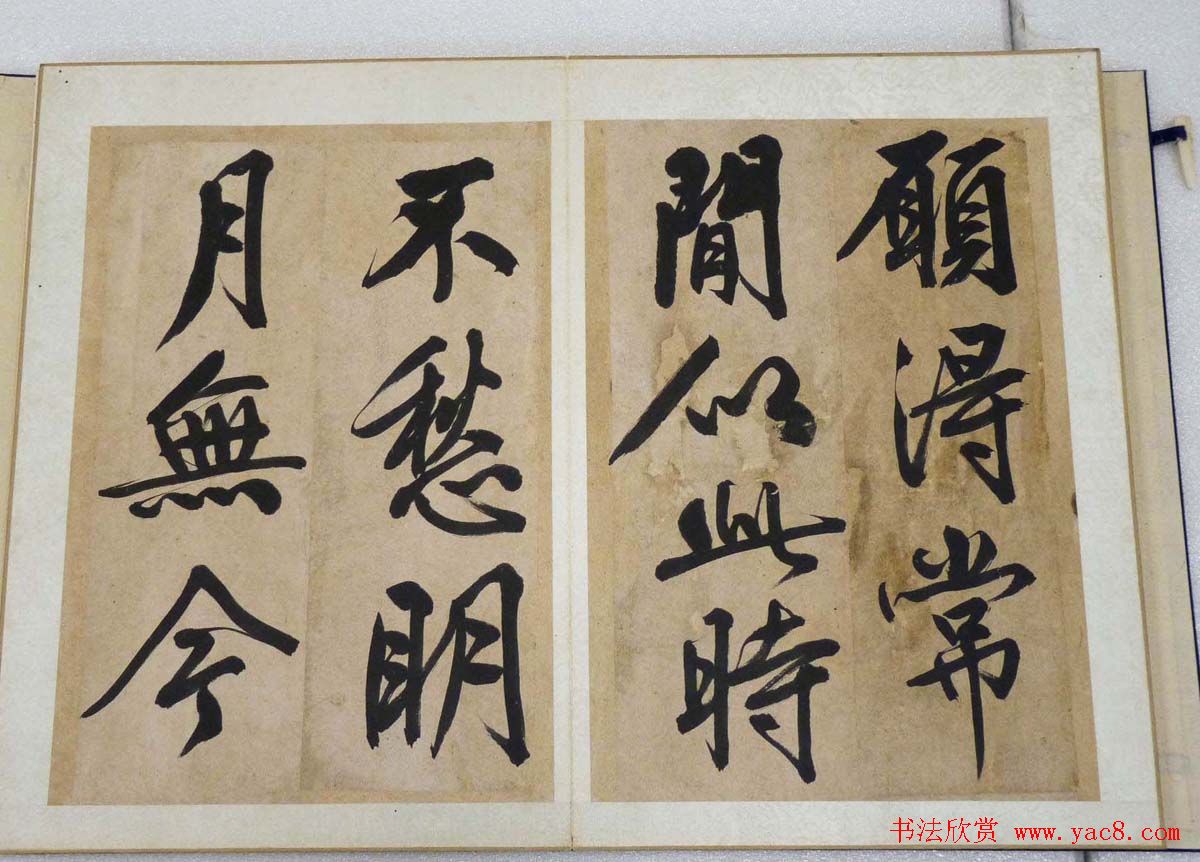 願得常
閒似此時
不愁明
月無今
书法欣赏 www.yac8.com